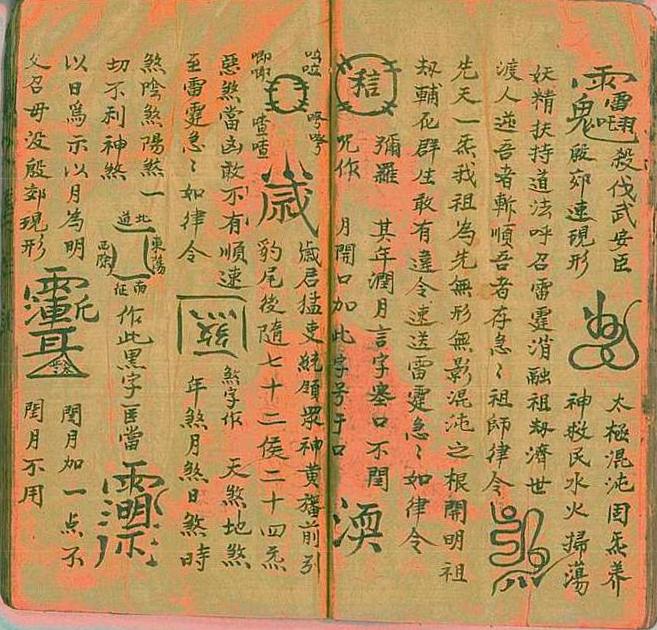 殺伐武安臣
殷郊速現形
太極混沌因炁养
神救民水火掃蕩
妖精扶持道法呼召雷霆消融祖劫濟世
渡人逆吾者斬順吾者存急〻祖師律令
先天一炁我祖為先無形無影混沌之根開明祖
劫輔花群生敢有違令速送雷霆急〻如律令
彌羅
咒作
其年潤月言字塞口不閏
月閙口加此字号于口
渙
歲
歲君猛吏統領眾神黄旛前引
豹尾後隨七十二侯二十四炁
唧唧
喳喳
惡煞當凶敢不有順速
至雷霆急〻如律令
煞
煞字作
天煞地煞
年煞月煞日煞時
煞陰煞陽煞一
切不利神煞
北道
東蕩
西除
南征
作此黑字臣當
以日為示以月為明
父召毋没殷郊現形
閏月加一点不
閏月不用